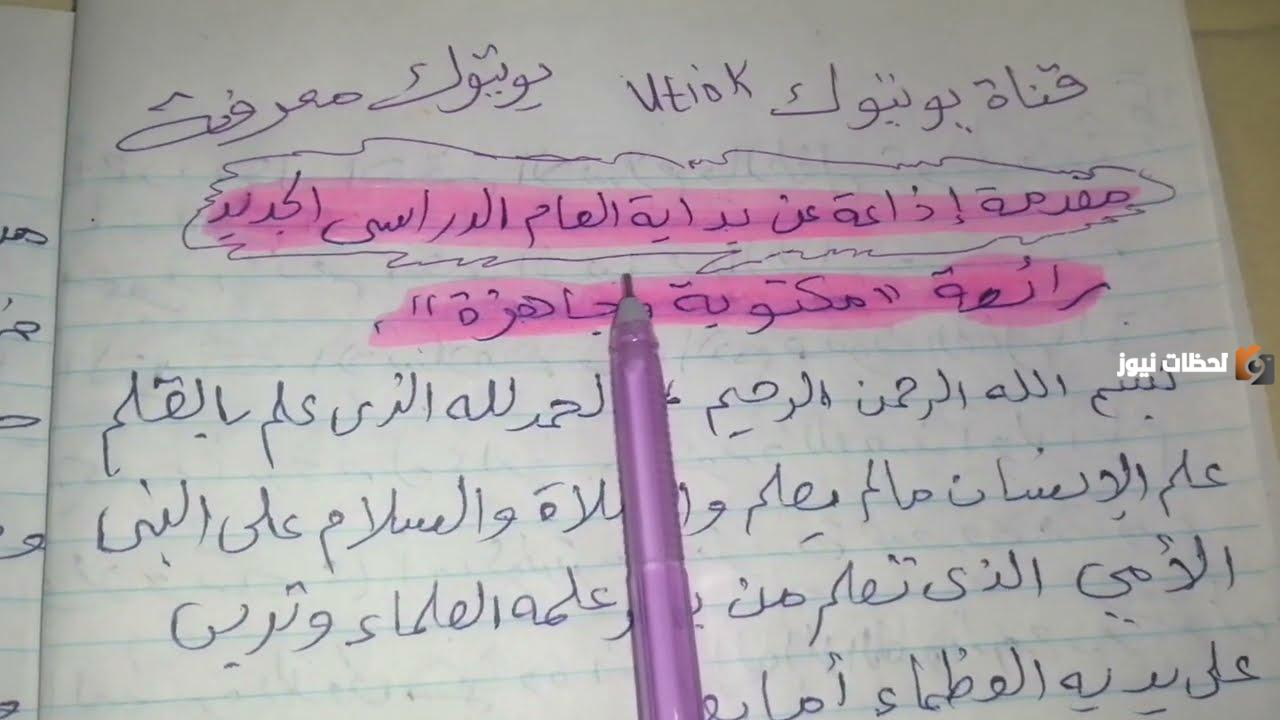 قناة يوتيوك utiok يوتيوك معرفة
مقدمة إذاعة عن بداية العام الدراسى الجديد
رائعة "مكتوبة جاهزة"
لحظات نيوز
بسم الله الرحمن الرحيم، الحمد لله الذى علم بالقلم
علم الإنسان مالم يعلم والسلام على النبى
الأمي الذى تعلم من علمه العلماء وتربى
على يديه العظماء أما